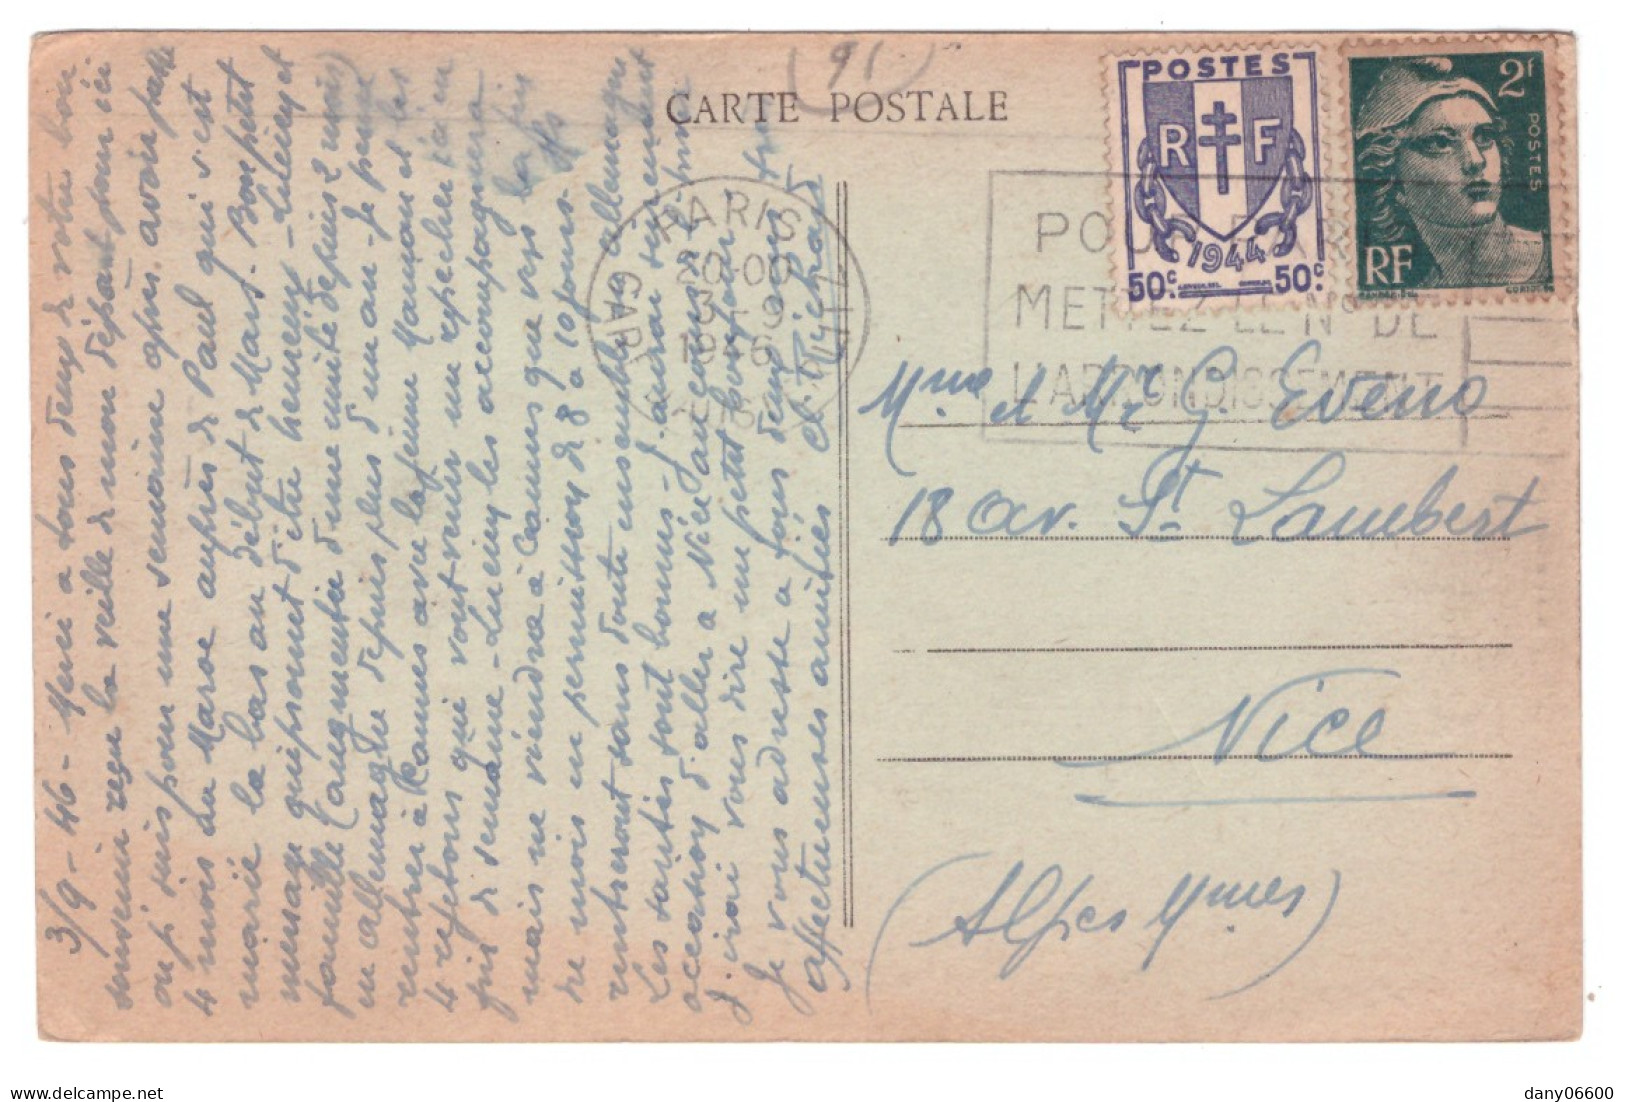 (91)
CARTE POSTALE
POSTES
RF
1944
50c 50c
2f
POSTES
RF
PARIS
20-00
3-9
1946
GARE
POUR PARIS
METTEZ LE No DE
L'ARRONDISSEMENT
Mme et Mr G. Eveno
18 av. St Lambert
Nice
(Alpes Mmes)
3/9-46- Merci à tous deux de votre bon
souvenir reçu la veille de mon départ pour ici
où je suis pour une semaine après avoir passé
4 mois au Maroc auprès de Paul qui s'est
marié là bas au début de Mars. Bon petit
ménage qui promet d'être heureux - Lucien et
famille (augmentée d'une unité depuis 2 mois)
en allemagne depuis plus d'un an - Je pense
rentrer à Cannes avec la jeune Maman et les
4 rejetons qui vont venir me repêcher ici en
fin de semaine - Lucien les accompagnera
mais ne viendra à Cannes que vers la fin
de mois en permission de 8 à 10 jours.
rentreront sans doute ensemble en allemagne
Les santés sont bonnes - J'aurai sûrement
occasion d'aller à Nice au cours de
J'irai vous dire un petit bonjour
Je vous adresse à tous deux mes
affectueuses amitiés